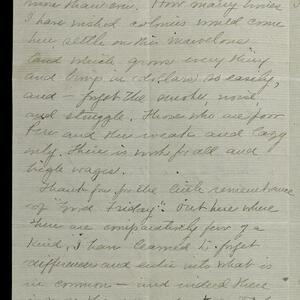 more than one. How many times
I have wished colonies would come
here settle on this marvelous
land which grows every thing
and living in so easily,
and - forget the smoke, noise
and struggle. Those who are poor
here and the weak and lazy
only. There is work for all and
high wages.
Thank you for the little remembrance
of "Good Friday". Out here where
there are comparatively few of a
kind, I have learned to forget
differences and enter into what is
in common - and indeed there